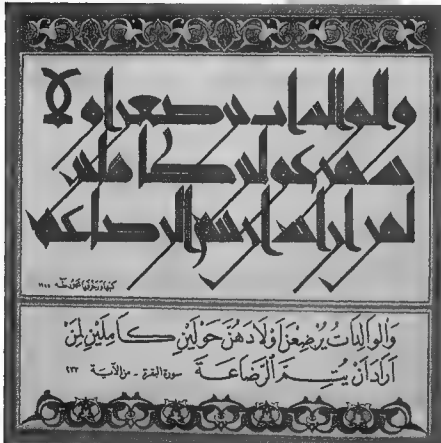 والوالدات يرضعن اولا
دهن حولين كاملين
لمن اراد ان يتم الرضاعة
كتبها وزخرفها محمود طه
وَالوَالِدَاتُ يُرْضِعْنَ اَوْلَادَهُنَّ حَوْلَيْنِ كَامِلَيْنِ لِمَنْ
اَرَادَ اَنْ يُتِمَّ الرَّضَاعَةَ سورة البقرة - من الآية ٢٣٣